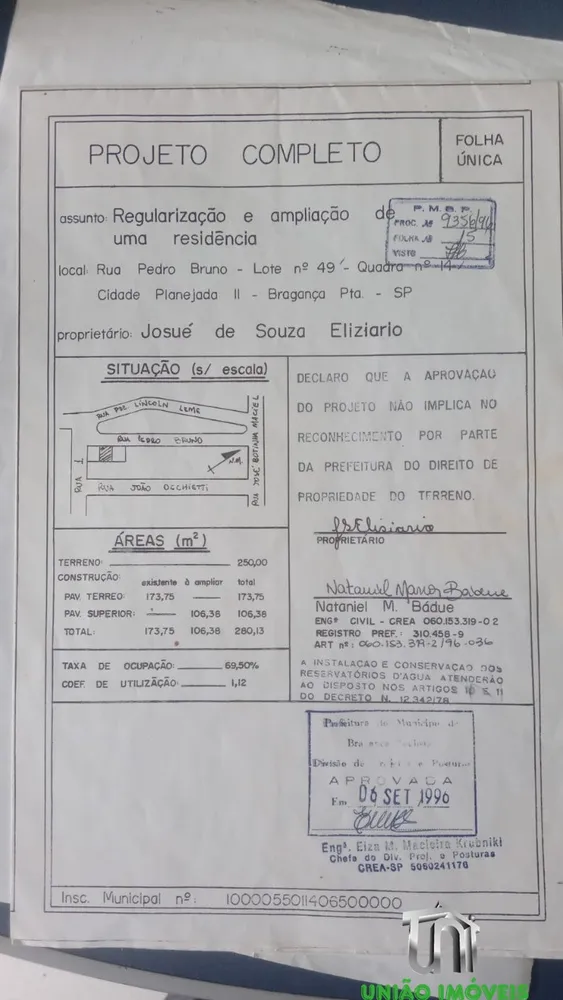 PROJETO COMPLETO
FOLHA
ÚNICA
assunto: Regularização e ampliação de
uma residência
P. M. B. P.
PROC. Nº 9356/96
FOLHA Nº 15
VISTO
local: Rua Pedro Bruno - Lote nº 49 - Quadra nº 14
Cidade Planejada II - Bragança Pta. - SP
proprietário: Josué de Souza Eliziario
SITUAÇÃO (s/ escala)
RUA PRE. LINCOLN LEME
RUA PEDRO BRUNO
N.M.
RUA 1
RUA JOÃO OCCHIETTI
RUA JOSÉ BOTINHA MACIEL
ÁREAS (m²)
TERRENO: 250,00
CONSTRUÇÃO: existente à ampliar total
PAV. TERREO: 173,75 — 173,75
PAV. SUPERIOR: — 106,38 106,38
TOTAL: 173,75 106,38 280,13
TAXA DE OCUPAÇÃO: 69,50%
COEF. DE UTILIZAÇÃO: 1,12
DECLARO QUE A APROVAÇAO
DO PROJETO NÃO IMPLICA NO
RECONHECIMENTO POR PARTE
DA PREFEITURA DO DIREITO DE
PROPRIEDADE DO TERRENO.
PROPRIETÁRIO
Nataniel M. Bádue
ENGº CIVIL - CREA 060.153.319-0 2
REGISTRO PREF.: 310.458-9
ART nº: 060.153.319-2/96-036
A INSTALAÇAO E CONSERVAÇAO DOS
RESERVATÓRIOS D'AGUA ATENDERÃO
AO DISPOSTO NOS ARTIGOS 10 E 11
DO DECRETO N. 12.342/78
Prefeitura do Município de
Divisão de
APROVADA
Em 06 SET 1996
Engª. Elza M. Macieira Krubniki
Chefe do Div. Proj. e Posturas
CREA-SP 5060241178
Insc. Municipal nº: 1000055011406500000
UNIÃO IMÓVEIS